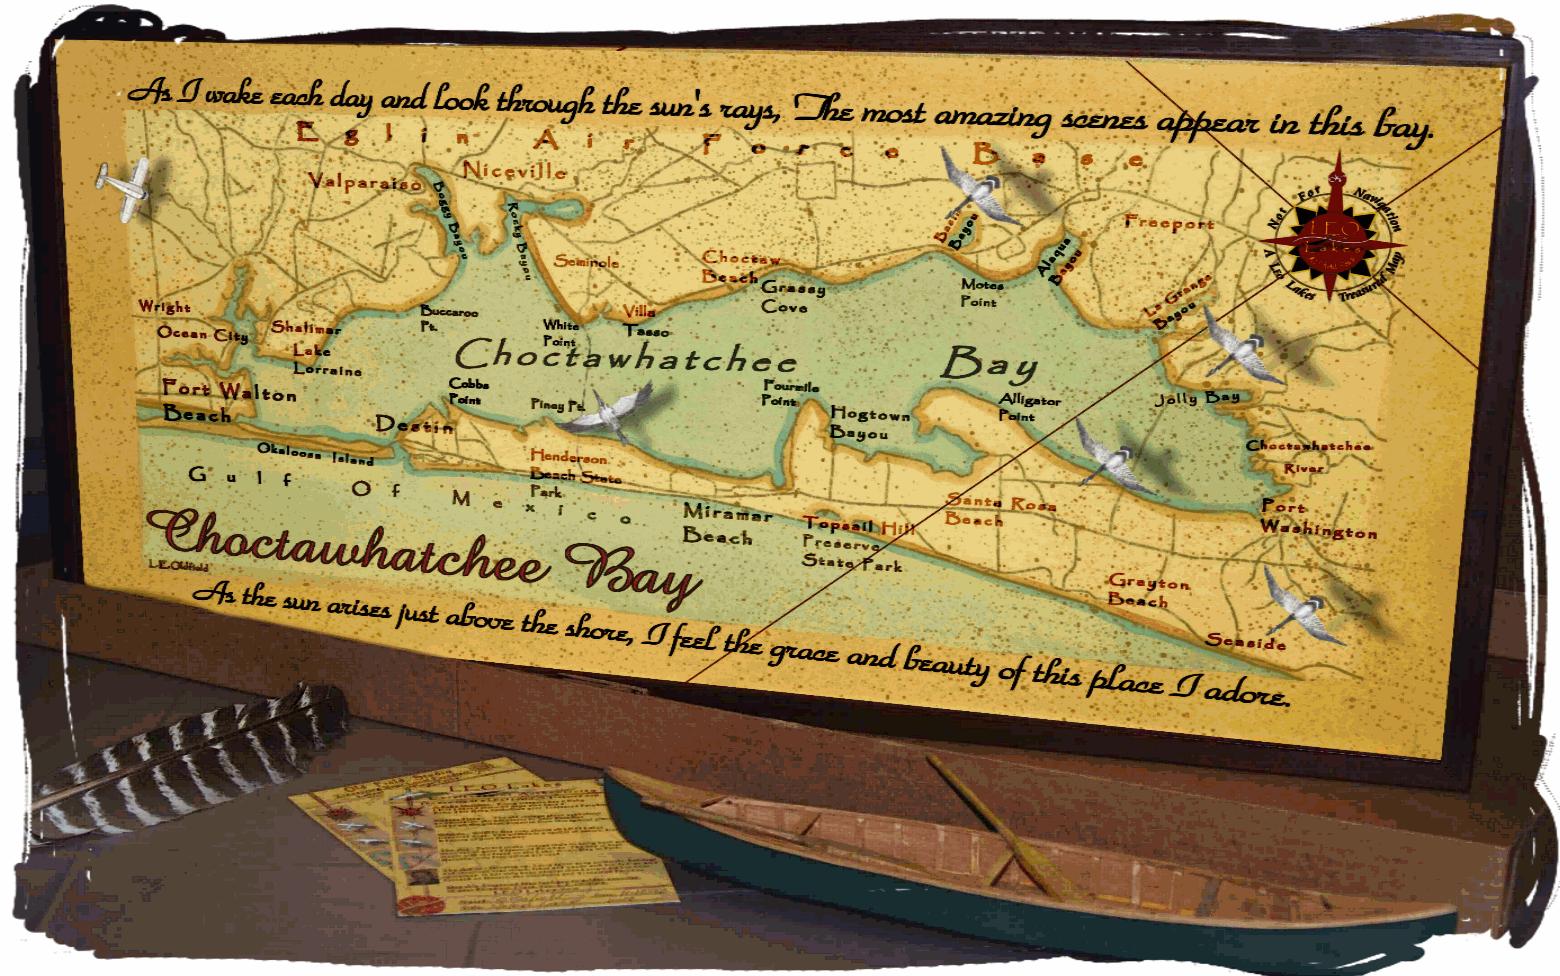 As I wake each day and look through the sun's rays, The most amazing scenes appear in this bay.
Eglin Air Force Base
Valparaiso
Niceville
Boggy Bayou
Rocky Bayou
Seminole
Choctaw
Beach
Grassy
Cove
Basin
Bayou
Motes
Point
Alaqua
Bayou
Freeport
Not For Navigation
LEO
Lakes
A Leo Lakes Treasured Map
La Grange
Bayou
Wright
Ocean City
Shalimar
Lake
Lorraine
Buccaroo
Pt.
White
Point
Villa
Tasso
Choctawhatchee Bay
Fort Walton
Beach
Cobbs
Point
Piney Pt.
Fourmile
Point
Hogtown
Bayou
Alligator
Point
Jolly Bay
Destin
Okaloosa Island
Henderson
Beach State
Park
Choctawhatchee
River
Gulf Of Mexico
Miramar
Beach
Topsail Hill
Preserve
State Park
Santa Rosa
Beach
Port
Washington
Choctawhatchee Bay
L.E.Oldfield
Grayton
Beach
Seaside
As the sun arises just above the shore, I feel the grace and beauty of this place I adore.
LEO Lakes